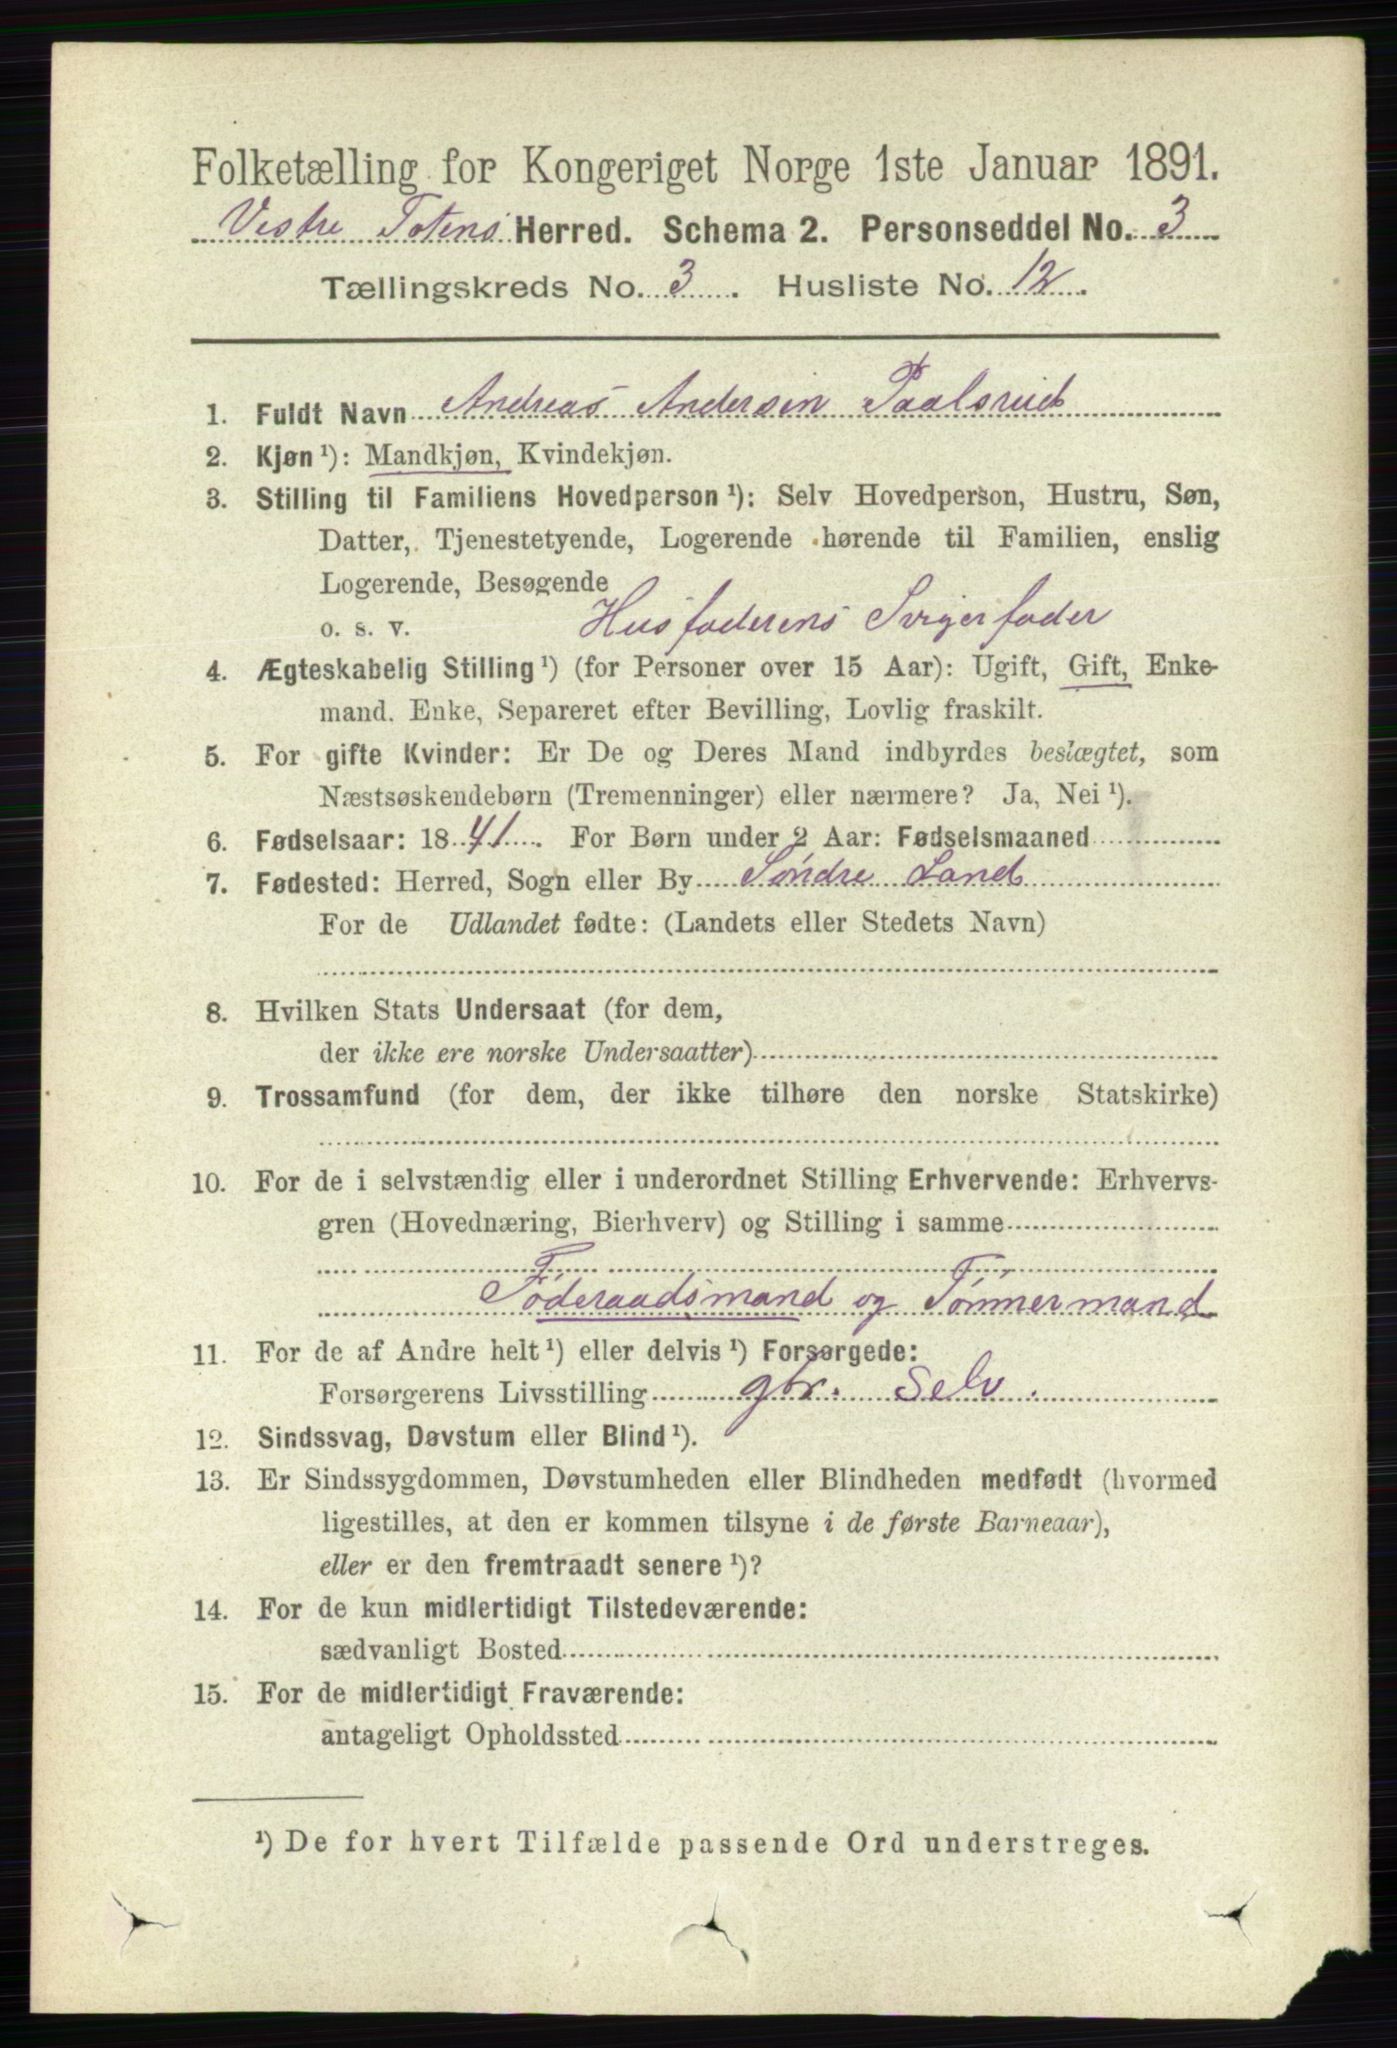 Folketælling for Kongeriget Norge 1ste Januar 1891.
Vestre Totens Herred. Schema 2. Personseddel No. 3
Tællingskreds No. 3. Husliste No. 12.
1. Fuldt Navn Andreas Andersen Paalsrud
2. Kjøn ¹): Mandkjøn, Kvindekjøn.
3. Stilling til Familiens Hovedperson ¹): Selv Hovedperson, Hustru, Søn,
Datter, Tjenestetyende, Logerende hørende til Familien, enslig
Logerende, Besøgende
o. s. v. Husfaderens Svigerfader
4. Ægteskabelig Stilling ¹) (for Personer over 15 Aar): Ugift, Gift, Enke-
mand. Enke, Separeret efter Bevilling, Lovlig fraskilt.
5. For gifte Kvinder: Er De og Deres Mand indbyrdes beslægtet, som
Næstsøskendebørn (Tremenninger) eller nærmere? Ja, Nei ¹).
6. Fødselsaar: 1841. For Børn under 2 Aar: Fødselsmaaned
7. Fødested: Herred, Sogn eller By Søndre Land
For de Udlandet fødte: (Landets eller Stedets Navn)
8. Hvilken Stats Undersaat (for dem,
der ikke ere norske Undersaatter)
9. Trossamfund (for dem, der ikke tilhøre den norske Statskirke)
10. For de i selvstændig eller i underordnet Stilling Erhvervende: Erhvervs-
gren (Hovednæring, Bierhverv) og Stilling i samme
Føderaadsmand og Tømmermand
11. For de af Andre helt ¹) eller delvis ¹) Forsørgede:
Forsørgerens Livsstilling gbr. Selv.
12. Sindssvag, Døvstum eller Blind ¹).
13. Er Sindssygdommen, Døvstumheden eller Blindheden medfødt (hvormed
ligestilles, at den er kommen tilsyne i de første Barneaar),
eller er den fremtraadt senere ¹)?
14. For de kun midlertidigt Tilstedeværende:
sædvanligt Bosted
15. For de midlertidigt Fraværende:
antageligt Opholdssted
¹) De for hvert Tilfælde passende Ord understreges.